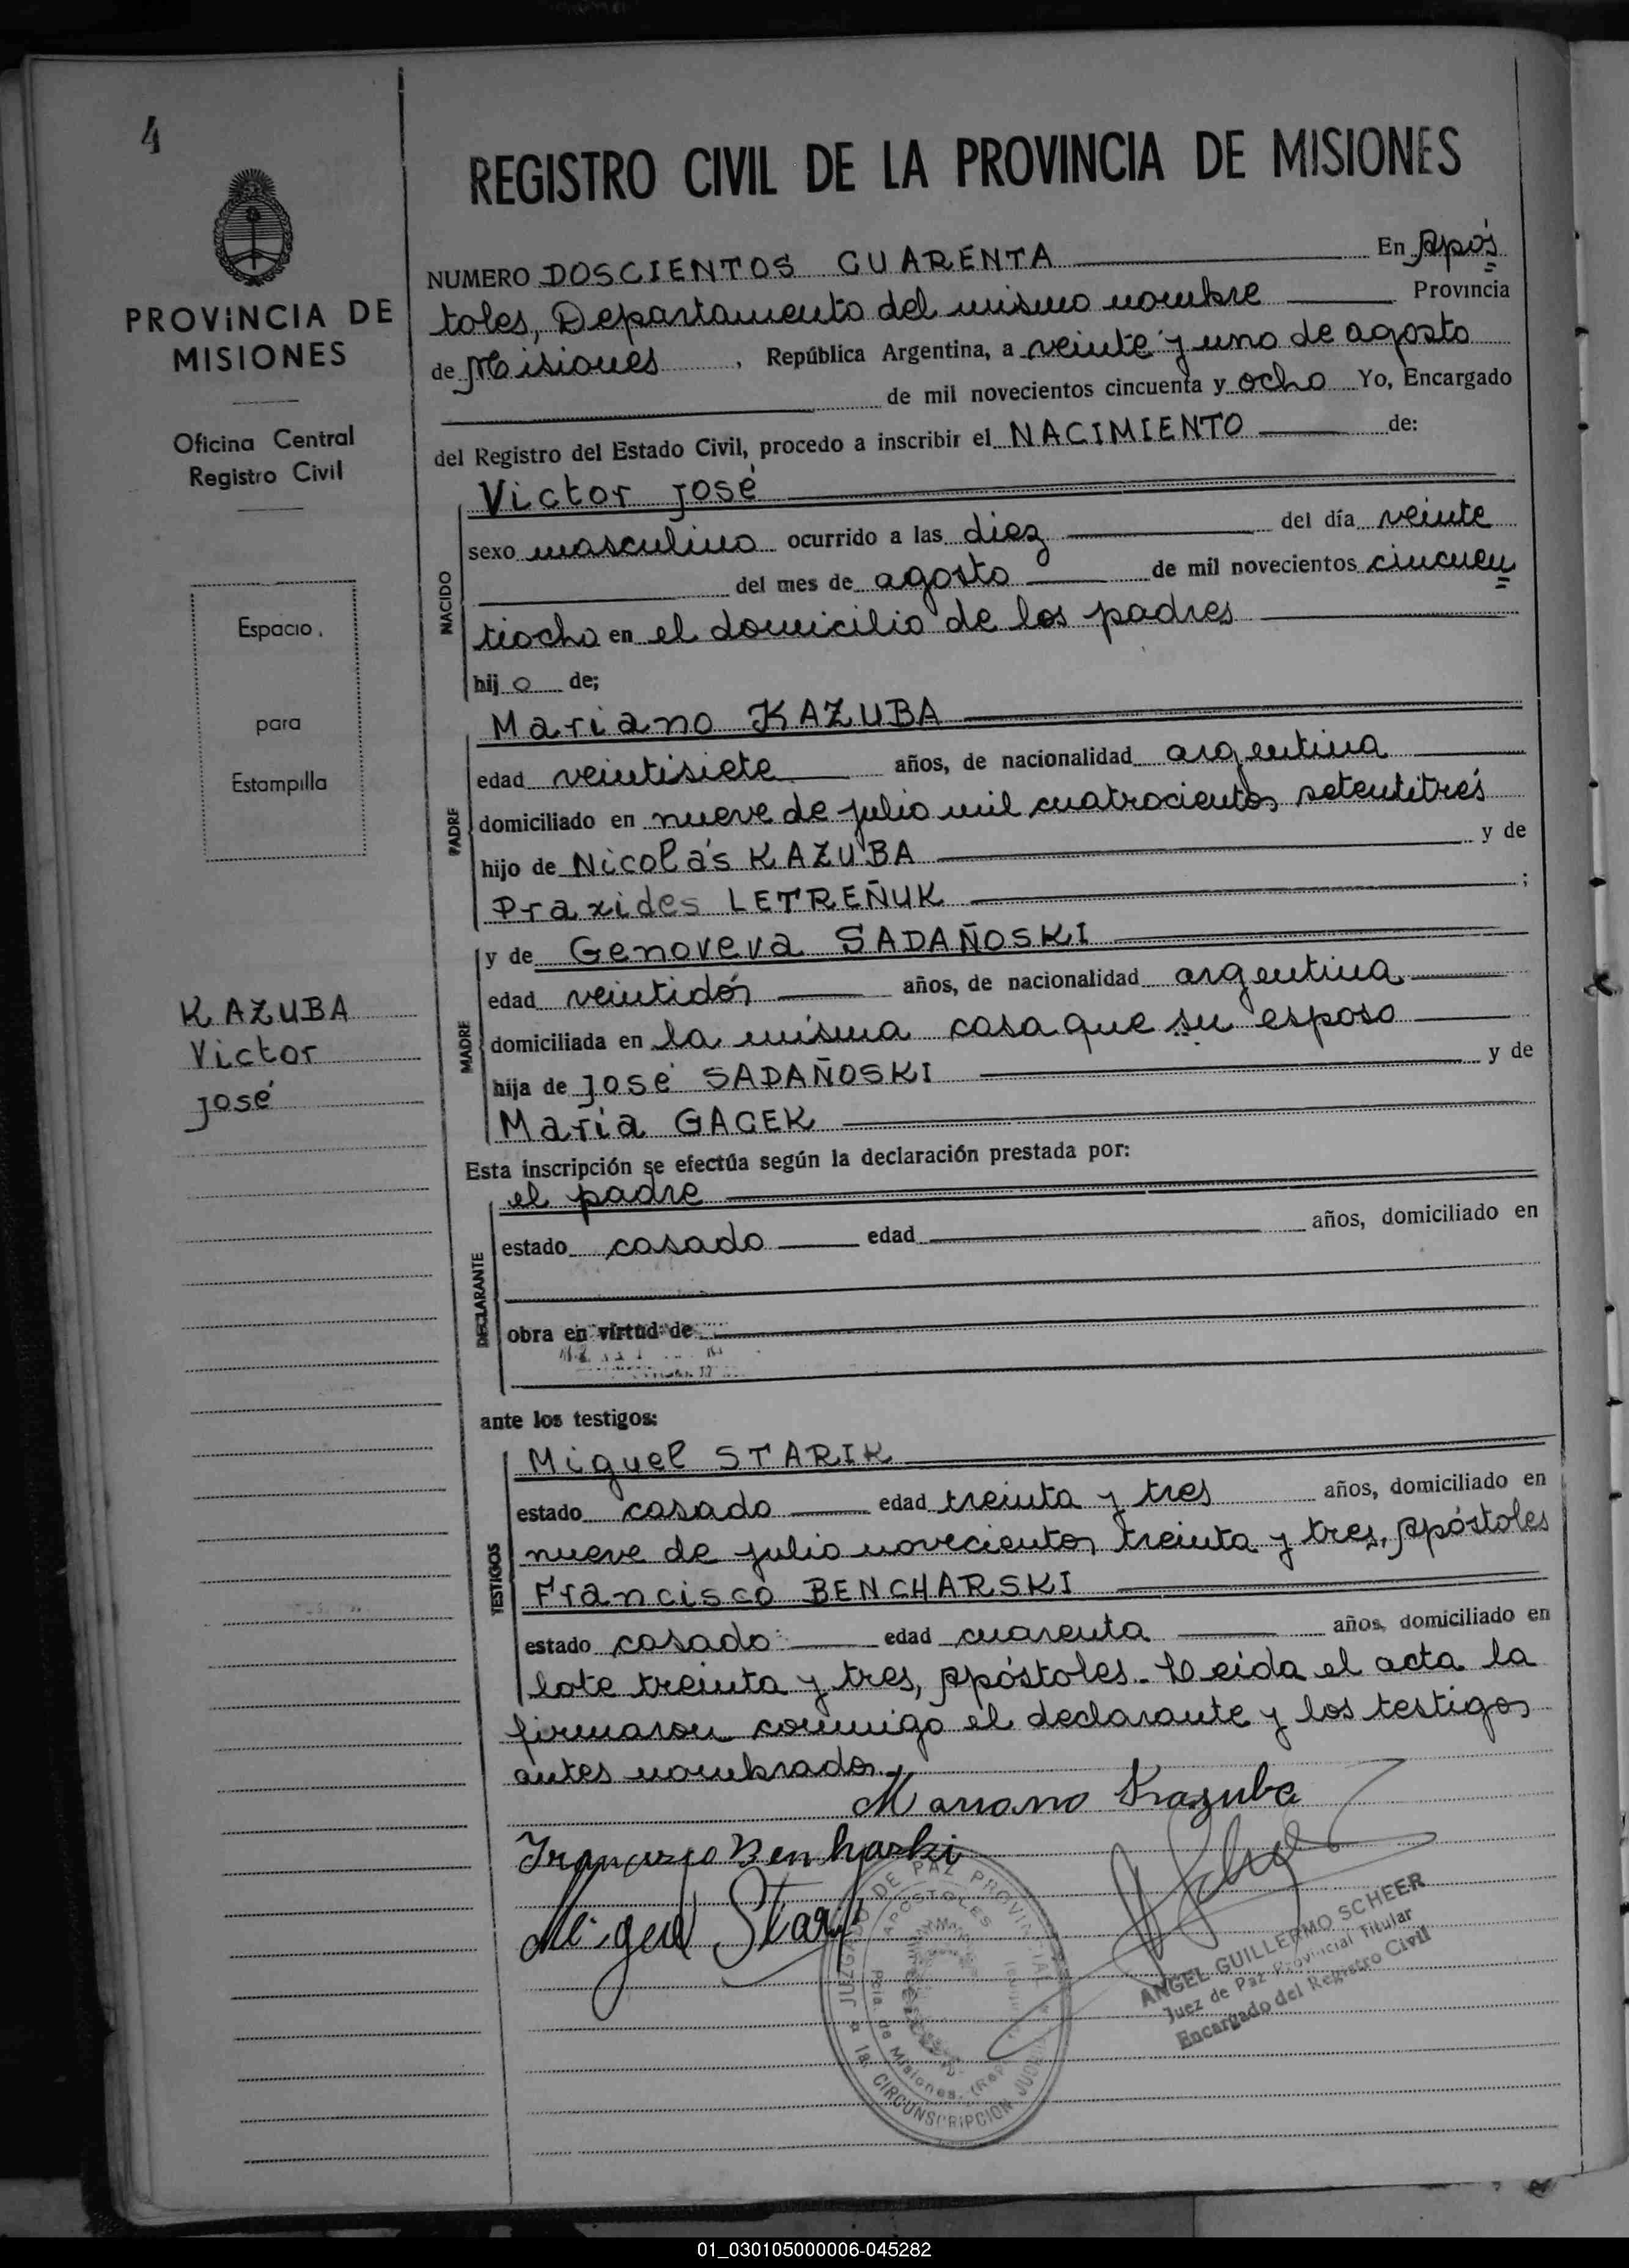 4
REGISTRO CIVIL DE LA PROVINCIA DE MISIONES
PROVINCIA DE
MISIONES
Oficina Central
Registro Civil
Espacio
para
Estampilla
KAZUBA
Victor
José
NUMERO DOSCIENTOS CUARENTA En Após
toles, Departamento del mismo nombre Provincia
de Misiones, República Argentina, a veinte y uno de agosto
de mil novecientos cincuenta y ocho Yo, Encargado
del Registro del Estado Civil, procedo a inscribir el NACIMIENTO de:
NACIDO
Victor José
sexo masculino ocurrido a las diez del día veinte
del mes de agosto de mil novecientos cincuen
tiocho en el domicilio de los padres
hijo de;
PADRE
Mariano KAZUBA
edad veintisiete años, de nacionalidad argentina
domiciliado en nueve de julio mil cuatrocientos setentitrés
hijo de Nicolás KAZUBA y de
Praxides LETREÑUK ;
MADRE
y de Genoveva SADAÑOSKI
edad veintidós años, de nacionalidad argentina
domiciliada en la misma casa que su esposo
hija de José SADAÑOSKI y de
María GACEK
Esta inscripción se efectúa según la declaración prestada por:
DECLARANTE
el padre
estado casado edad años, domiciliado en
obra en virtud de
ante los testigos:
TESTIGOS
Miguel STARIK
estado casado edad treinta y tres años, domiciliado en
nueve de julio novecientos treinta y tres, Apóstoles
Francisco BENCHARSKI
estado casado edad cuarenta años, domiciliado en
lote treinta y tres, Apóstoles. Leída el acta la
firmaron conmigo el declarante y los testigos
antes nombrados.
Mariano Kazuba
Francisco Benharski
Miguel Starik
JUZGADO DE PAZ PROVINCIAL
APOSTOLES
Pcia. de Misiones. (Rep.
1a. CIRCUNSCRIPCION JUD
ANGEL GUILLERMO SCHEER
Juez de Paz Provincial Titular
Encargado del Registro Civil
01_030105000006-045282